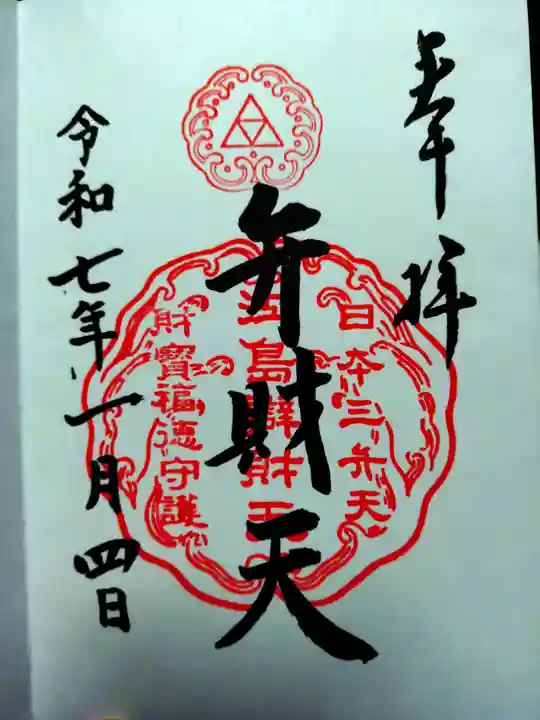 奉拝
弁財天
日本三弁天
江島辨財天
財寶福徳守護
令和七年一月四日